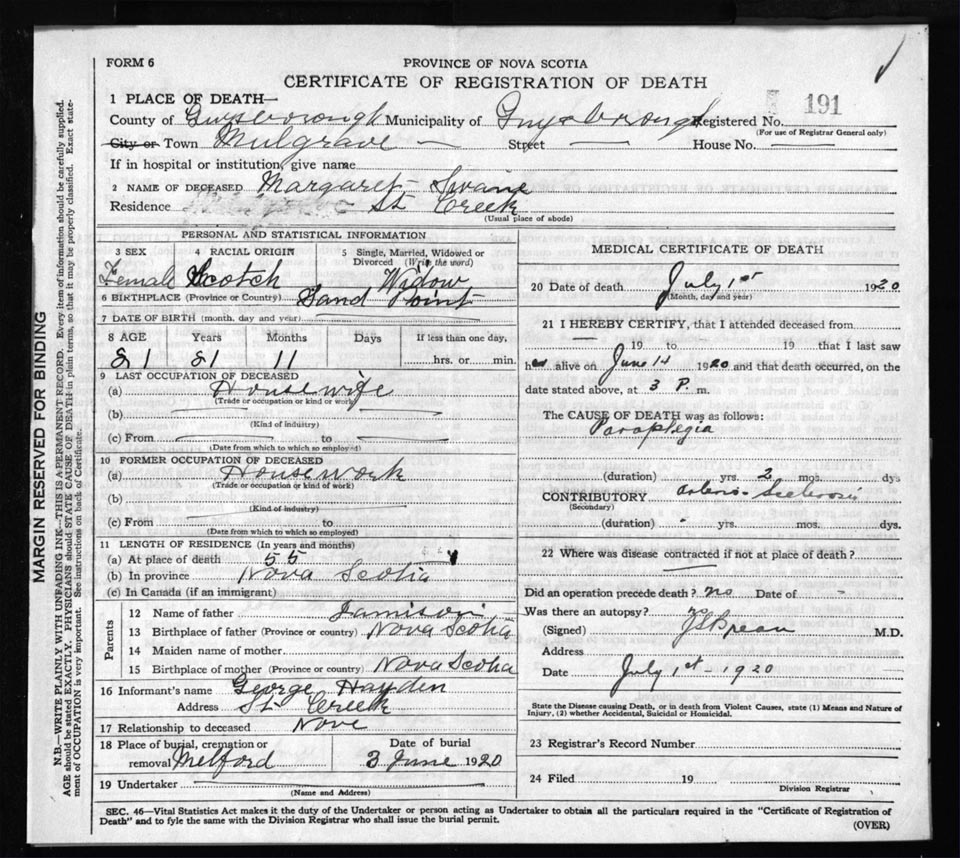 FORM 6
PROVINCE OF NOVA SCOTIA
CERTIFICATE OF REGISTRATION OF DEATH
1 PLACE OF DEATH—
County of Guysborough Municipality of Guysborough Registered No. 191
(For use of Registrar General only)
City or Town Mulgrave — Street — House No. —
If in hospital or institution, give name
2 NAME OF DECEASED Margaret Swaine
Residence St Creek
(Usual place of abode)
PERSONAL AND STATISTICAL INFORMATION
3 SEX Female
4 RACIAL ORIGIN Scotch
5 Single, Married, Widowed or Divorced (Write the word) Widow
6 BIRTHPLACE (Province or Country) Sand Point
7 DATE OF BIRTH (month, day and year)
8 AGE Years Months Days If less than one day,
81 81 11 hrs. or min.
9 LAST OCCUPATION OF DECEASED
(a) Housewife
(Trade or occupation or kind of work)
(b)
(Kind of industry)
(c) From to
(Date from which to which so employed)
10 FORMER OCCUPATION OF DECEASED
(a) Housework
(Trade or occupation or kind of work)
(b)
(Kind of industry)
(c) From to
(Date from which to which so employed)
11 LENGTH OF RESIDENCE (In years and months)
(a) At place of death 55
(b) In province Nova Scotia
(c) In Canada (if an immigrant)
Parents
12 Name of father Jamison
13 Birthplace of father (Province or country) Nova Scotia
14 Maiden name of mother
15 Birthplace of mother (Province or country) Nova Scotia
16 Informant's name George Hayden
Address St Creek
17 Relationship to deceased None
18 Place of burial, cremation or removal Melford
Date of burial 3 June 1920
19 Undertaker
(Name and Address)
MEDICAL CERTIFICATE OF DEATH
20 Date of death July 1st 1920
(Month, day and year)
21 I HEREBY CERTIFY, that I attended deceased from
19 to 19 that I last saw
her alive on June 14 1920 and that death occurred, on the
date stated above, at 3 P. m.
The CAUSE OF DEATH was as follows:
Paraplegia
(duration) yrs. 2 mos. dys
CONTRIBUTORY Arterio-Sclerosis
(Secondary)
(duration) yrs. mos. dys.
22 Where was disease contracted if not at place of death?
Did an operation precede death? no Date of -
Was there an autopsy? no
(Signed) M.D.
Address
Date July 1st - 1920
State the Disease causing Death, or in death from Violent Causes, state (1) Means and Nature of
Injury, (2) whether Accidental, Suicidal or Homicidal.
23 Registrar's Record Number
24 Filed 19
Division Registrar
SEC. 46—Vital Statistics Act makes it the duty of the Undertaker or person acting as Undertaker to obtain all the particulars required in the "Certificate of Registration of
Death" and to fyle the same with the Division Registrar who shall issue the burial permit.
(OVER)
MARGIN RESERVED FOR BINDING
N.B.—WRITE PLAINLY WITH UNFADING INK—THIS IS A PERMANENT RECORD. Every item of information should be carefully supplied.
AGE should be stated EXACTLY. PHYSICIANS should STATE CAUSE OF DEATH in plain terms, so that it may be properly classified. Exact statement of OCCUPATION is very important. See instructions on back of Certificate.